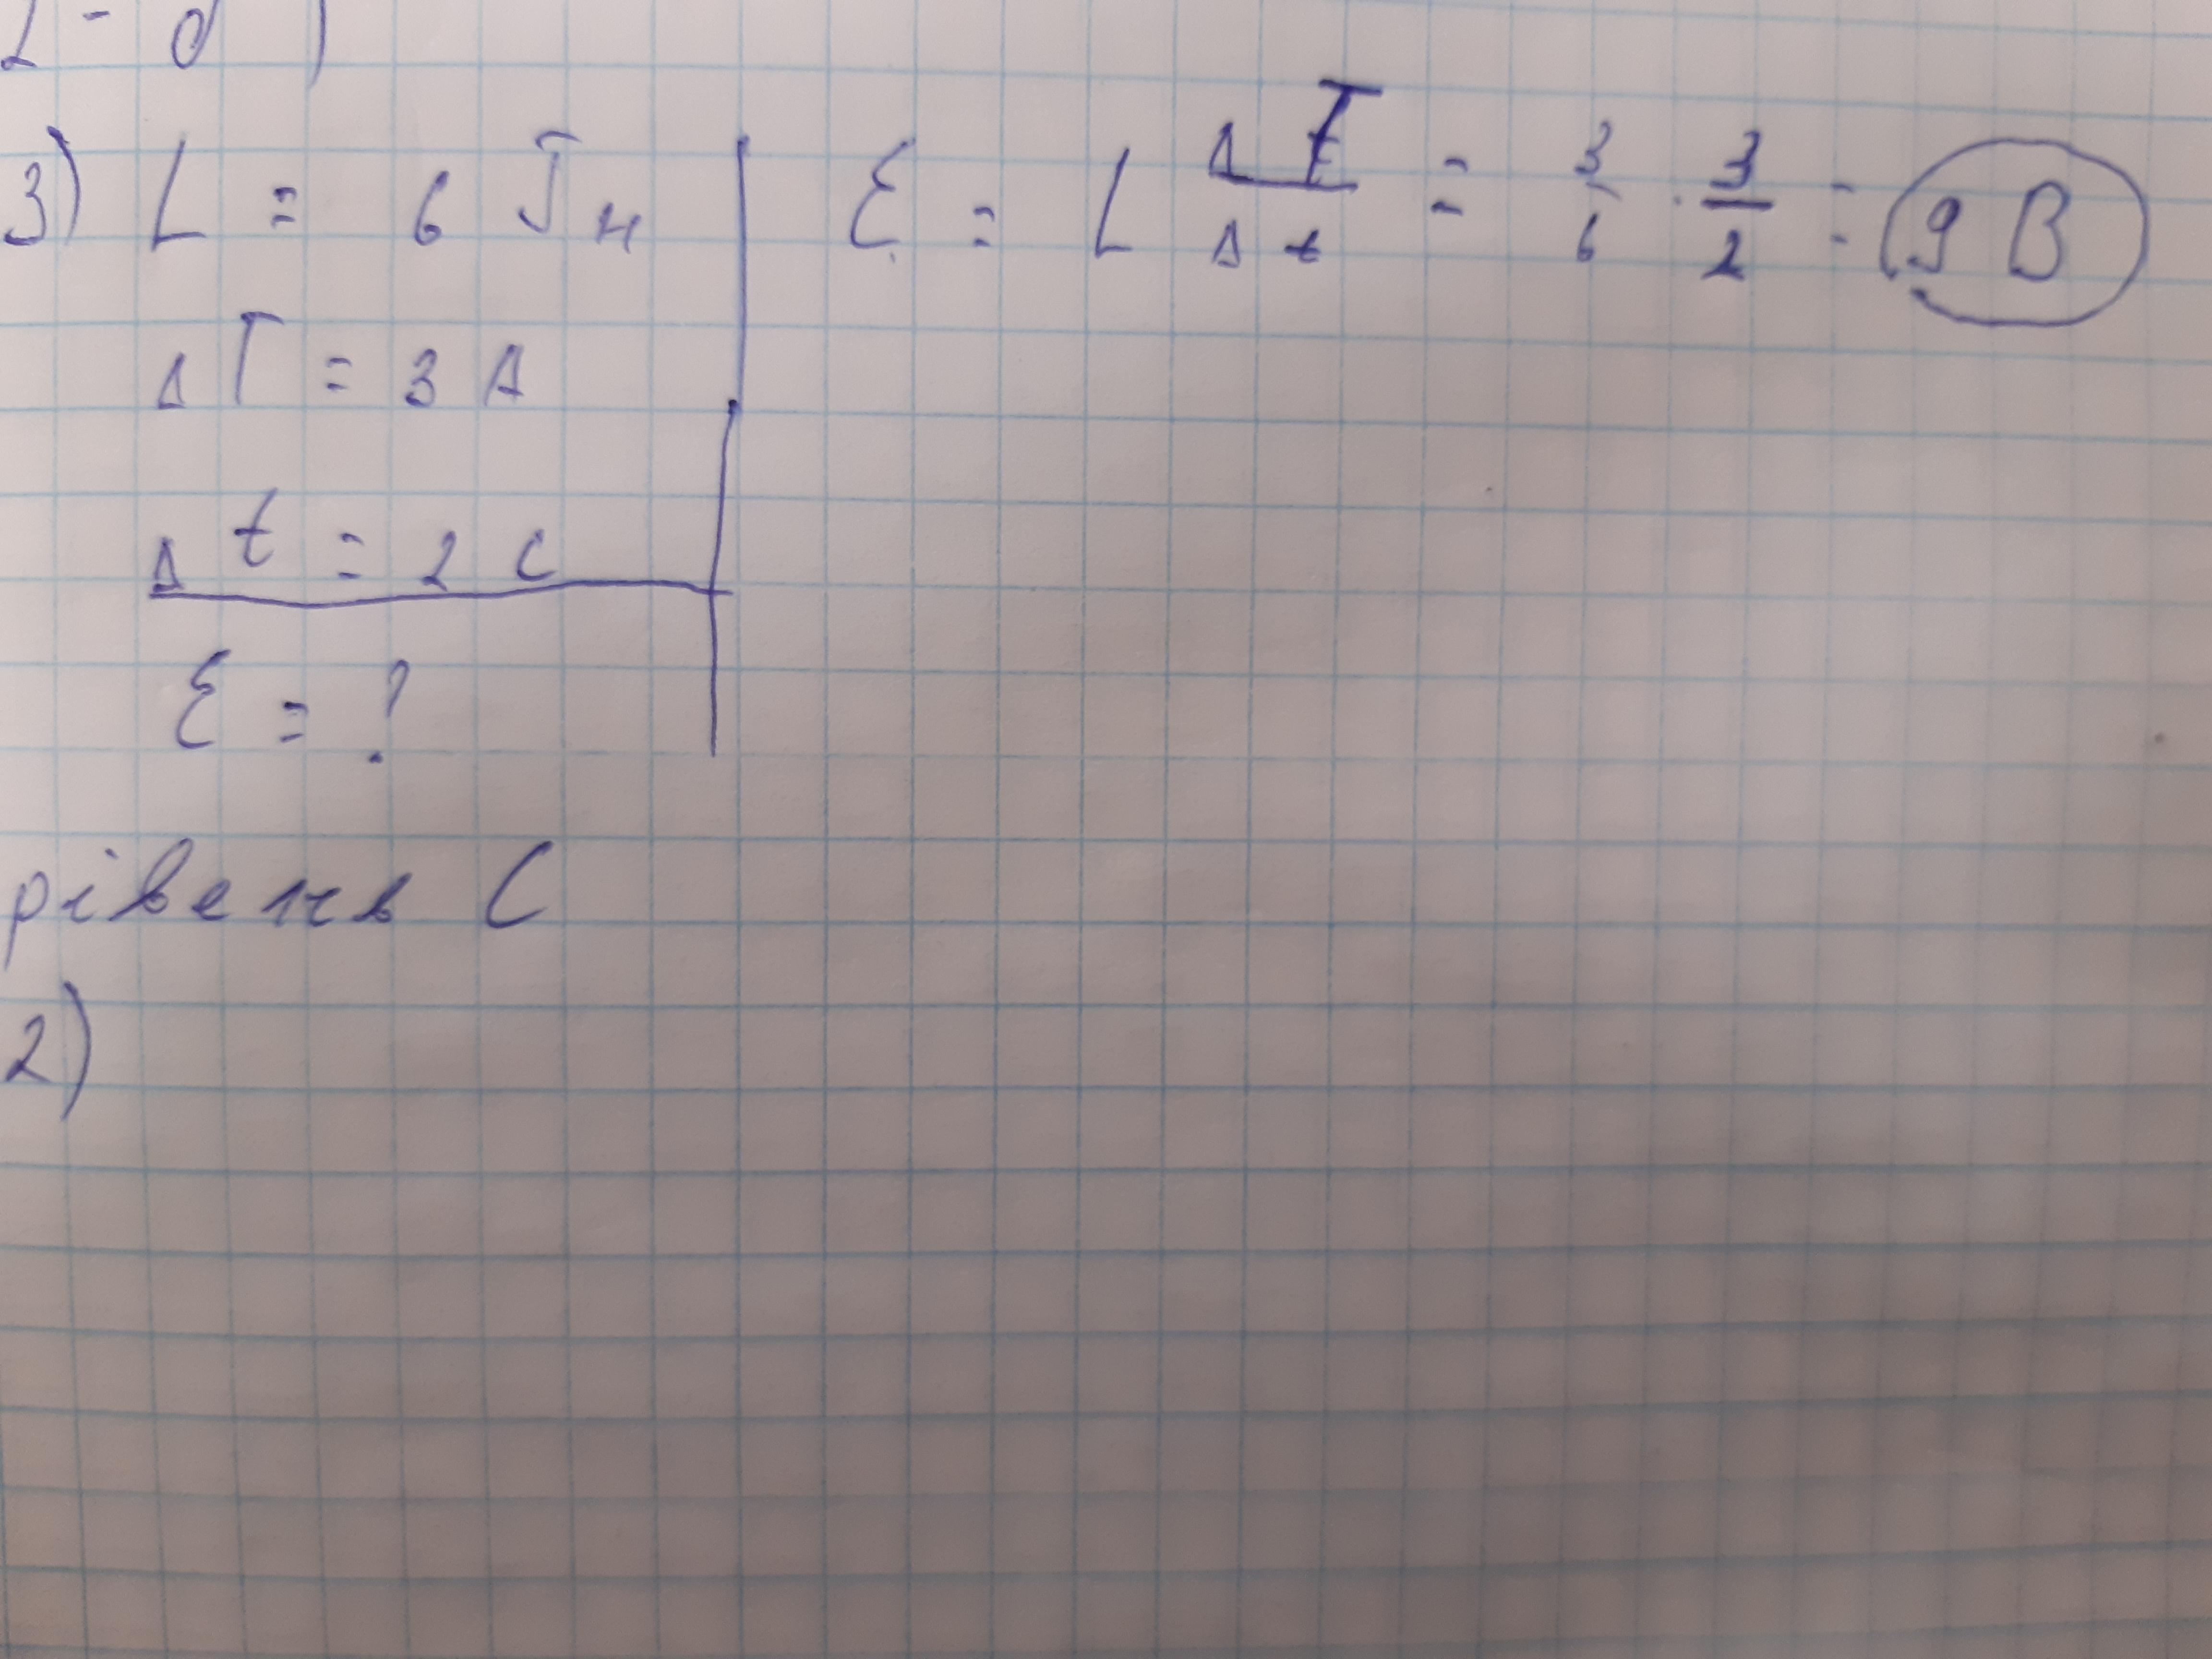 3) L = 6 Гн
ΔI = 3 A
Δt = 2 c
Ɛ = ?
Ɛ = L ΔI/Δt = 6 · 3/2 = 9 В
рівень С
2)